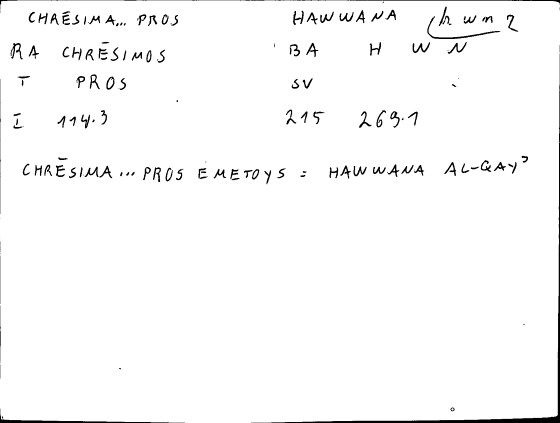 CHRĒSIMA... PROS HAWWANA (h w n 2
RA CHRĒSIMOS BA H W N
T PROS SV
I 114.3 215 269.1
CHRĒSIMA... PROS EMETOYS = HAWWANA AL-QAY'